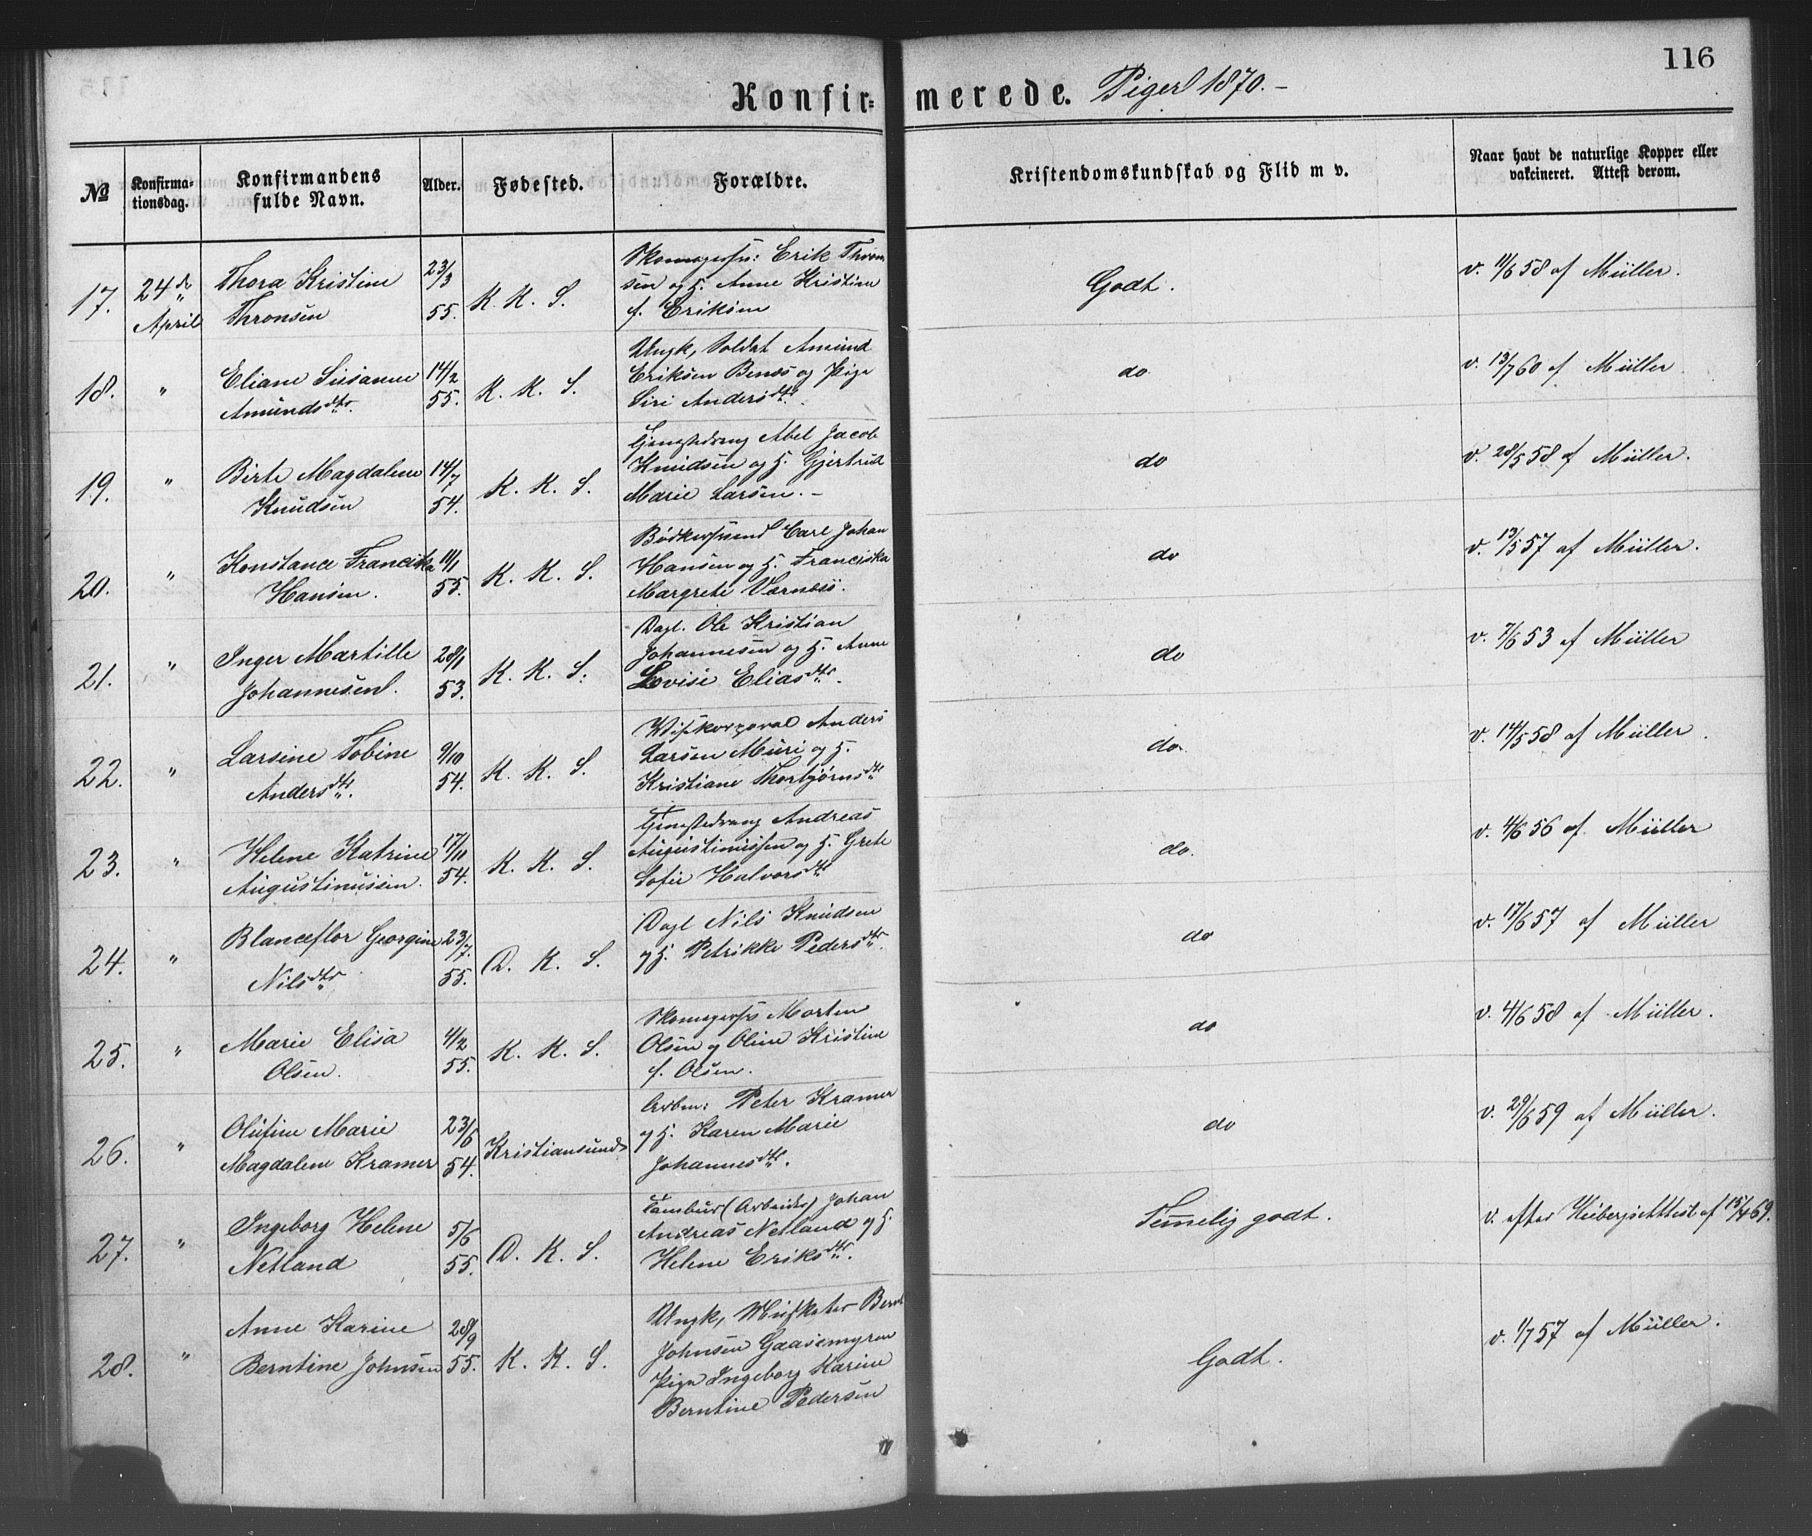 116
Konfir=merede. Piger 1870.-
№ Konfirma-tionsdag. Konfirmandens fulde Navn. Alder. Fødested. Forældre. Kristendomskundskab og Flid m v. Naar havt de naturlige Kopper eller vakcineret. Attest derom.
17. 24de April Thora Kristine Thronsen 23/3 55. K. K. S. Erik Thronsen og H. Anne Kristine f. Eriksen Godt. v. 11/6 58 af Müller.
18. " Eliane Susanne Amundsdtr. 14/2 55. K. K. S. Ungk, Soldat Amund Eriksen Benss og Pige Siri Andersdtr. do v. 13/7 60 af Müller.
19. " Birte Magdalene Knudsen 14/7 54. K. K. S. Tjenestedreng Abel Jacob Knudsen og H. Gjertrud Marie Larsen. - do v. 28/5 58 af Müller.
20. " Konstance Franciska Hansen. 11/1 55. K. K. S. Bødkersvend Carl Johan Hansen og H. Franciska Margrete Værness. do v. 13/5 57 af Müller.
21. " Inger Martille Johannesen. 28/1 53. K. K. S. Dagl. Ole Kristian Johannesen og H. Anne Lovise Eliasdtr. do v. 7/6 53 af Müller
22. " Larsine Tobine Andersdtr. 9/10 54. K. K. S. Anders Larsen Muri og H. Kristiane Thorbjørnsdtr do. v. 14/5 58 af Müller.
23. " Helene Katrine Augustinussen. 17/10 54. K. K. S. Tjenestedreng Andreas Augustinussen og H. Grete Sofie Halvorsdtr do. v. 4/6 56 af Müller
24. " Blanceflor Georgine Nilsdtr 23/7. 55. D. K. S. Dagl Nils Knudsen og H. Petrikke Pedersdtr. do v. 17/6 57 af Müller
25. " Marie Elisa Olsen. 4/2 55. K. K. S. Morten Olsen og Oline Kristine f. Olsen. do v. 4/6 58 af Müller.
26. " Olufine Marie Magdalene Kramer 23/6 54. Kristiansund Arbm: Peter Kramer og H. Karen Marie Johannesdtr. do v. 29/6 59 af Müller.
27. " Ingeborg Helene Netland 5/6 55. D. K. S. Tambur (Arbeider) Johan Andreas Netland og H. Helene Eriksdtr. Temmelig godt. v. efter Attest af 15/4 69.
28. " Anne Karine Berntine Johnsen 28/9 55. K. K. S. Ungk, Musketer Bernt Johnsen Gaasemyren Pige Ingeborg Karine Berntine Pedersen Godt. v. 1/7 57 af Müller.